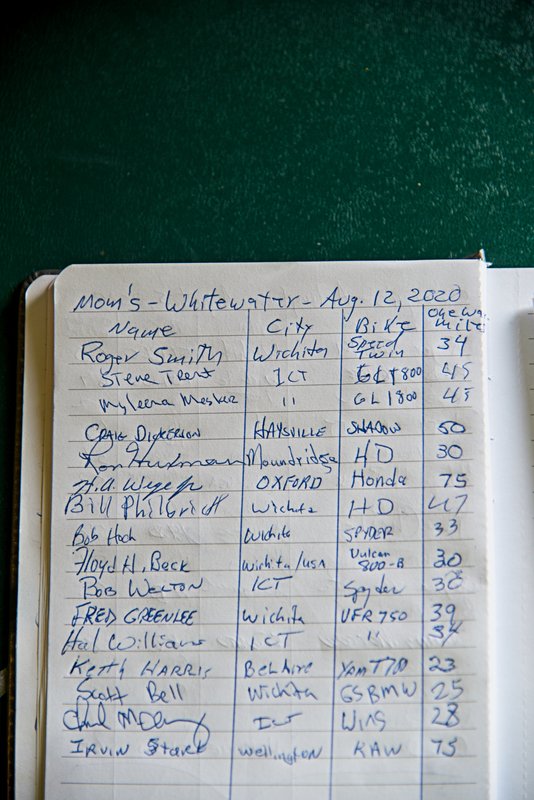 Mom's - Whitewater - Aug. 12, 2020
Name City Bike one way miles
Roger Smith Wichita Speed Twin 34
Steve Trent ICT GL1800 45
Myleena Mesker " GL1800 45
CRAIG DICKERSON HAYSVILLE SHADOW 50
Ron Moundridge HD 30
H.A. OXFORD Honda 75
Bill Philbrick Wichita HD 47
Bob Hoch Wichita SPYDER 33
Floyd H. Beck Wichita/USA Vulcan 800-B 30
BOB WELTON ICT Spyder 38
FRED GREENLEE Wichita VFR750 39
Hal Williams ICT " 34
Keith HARRIS BelAire 23
Scott Bell Wichita GSBMW 25
ICT WING 28
IRVIN Stark Wellington KAW 75